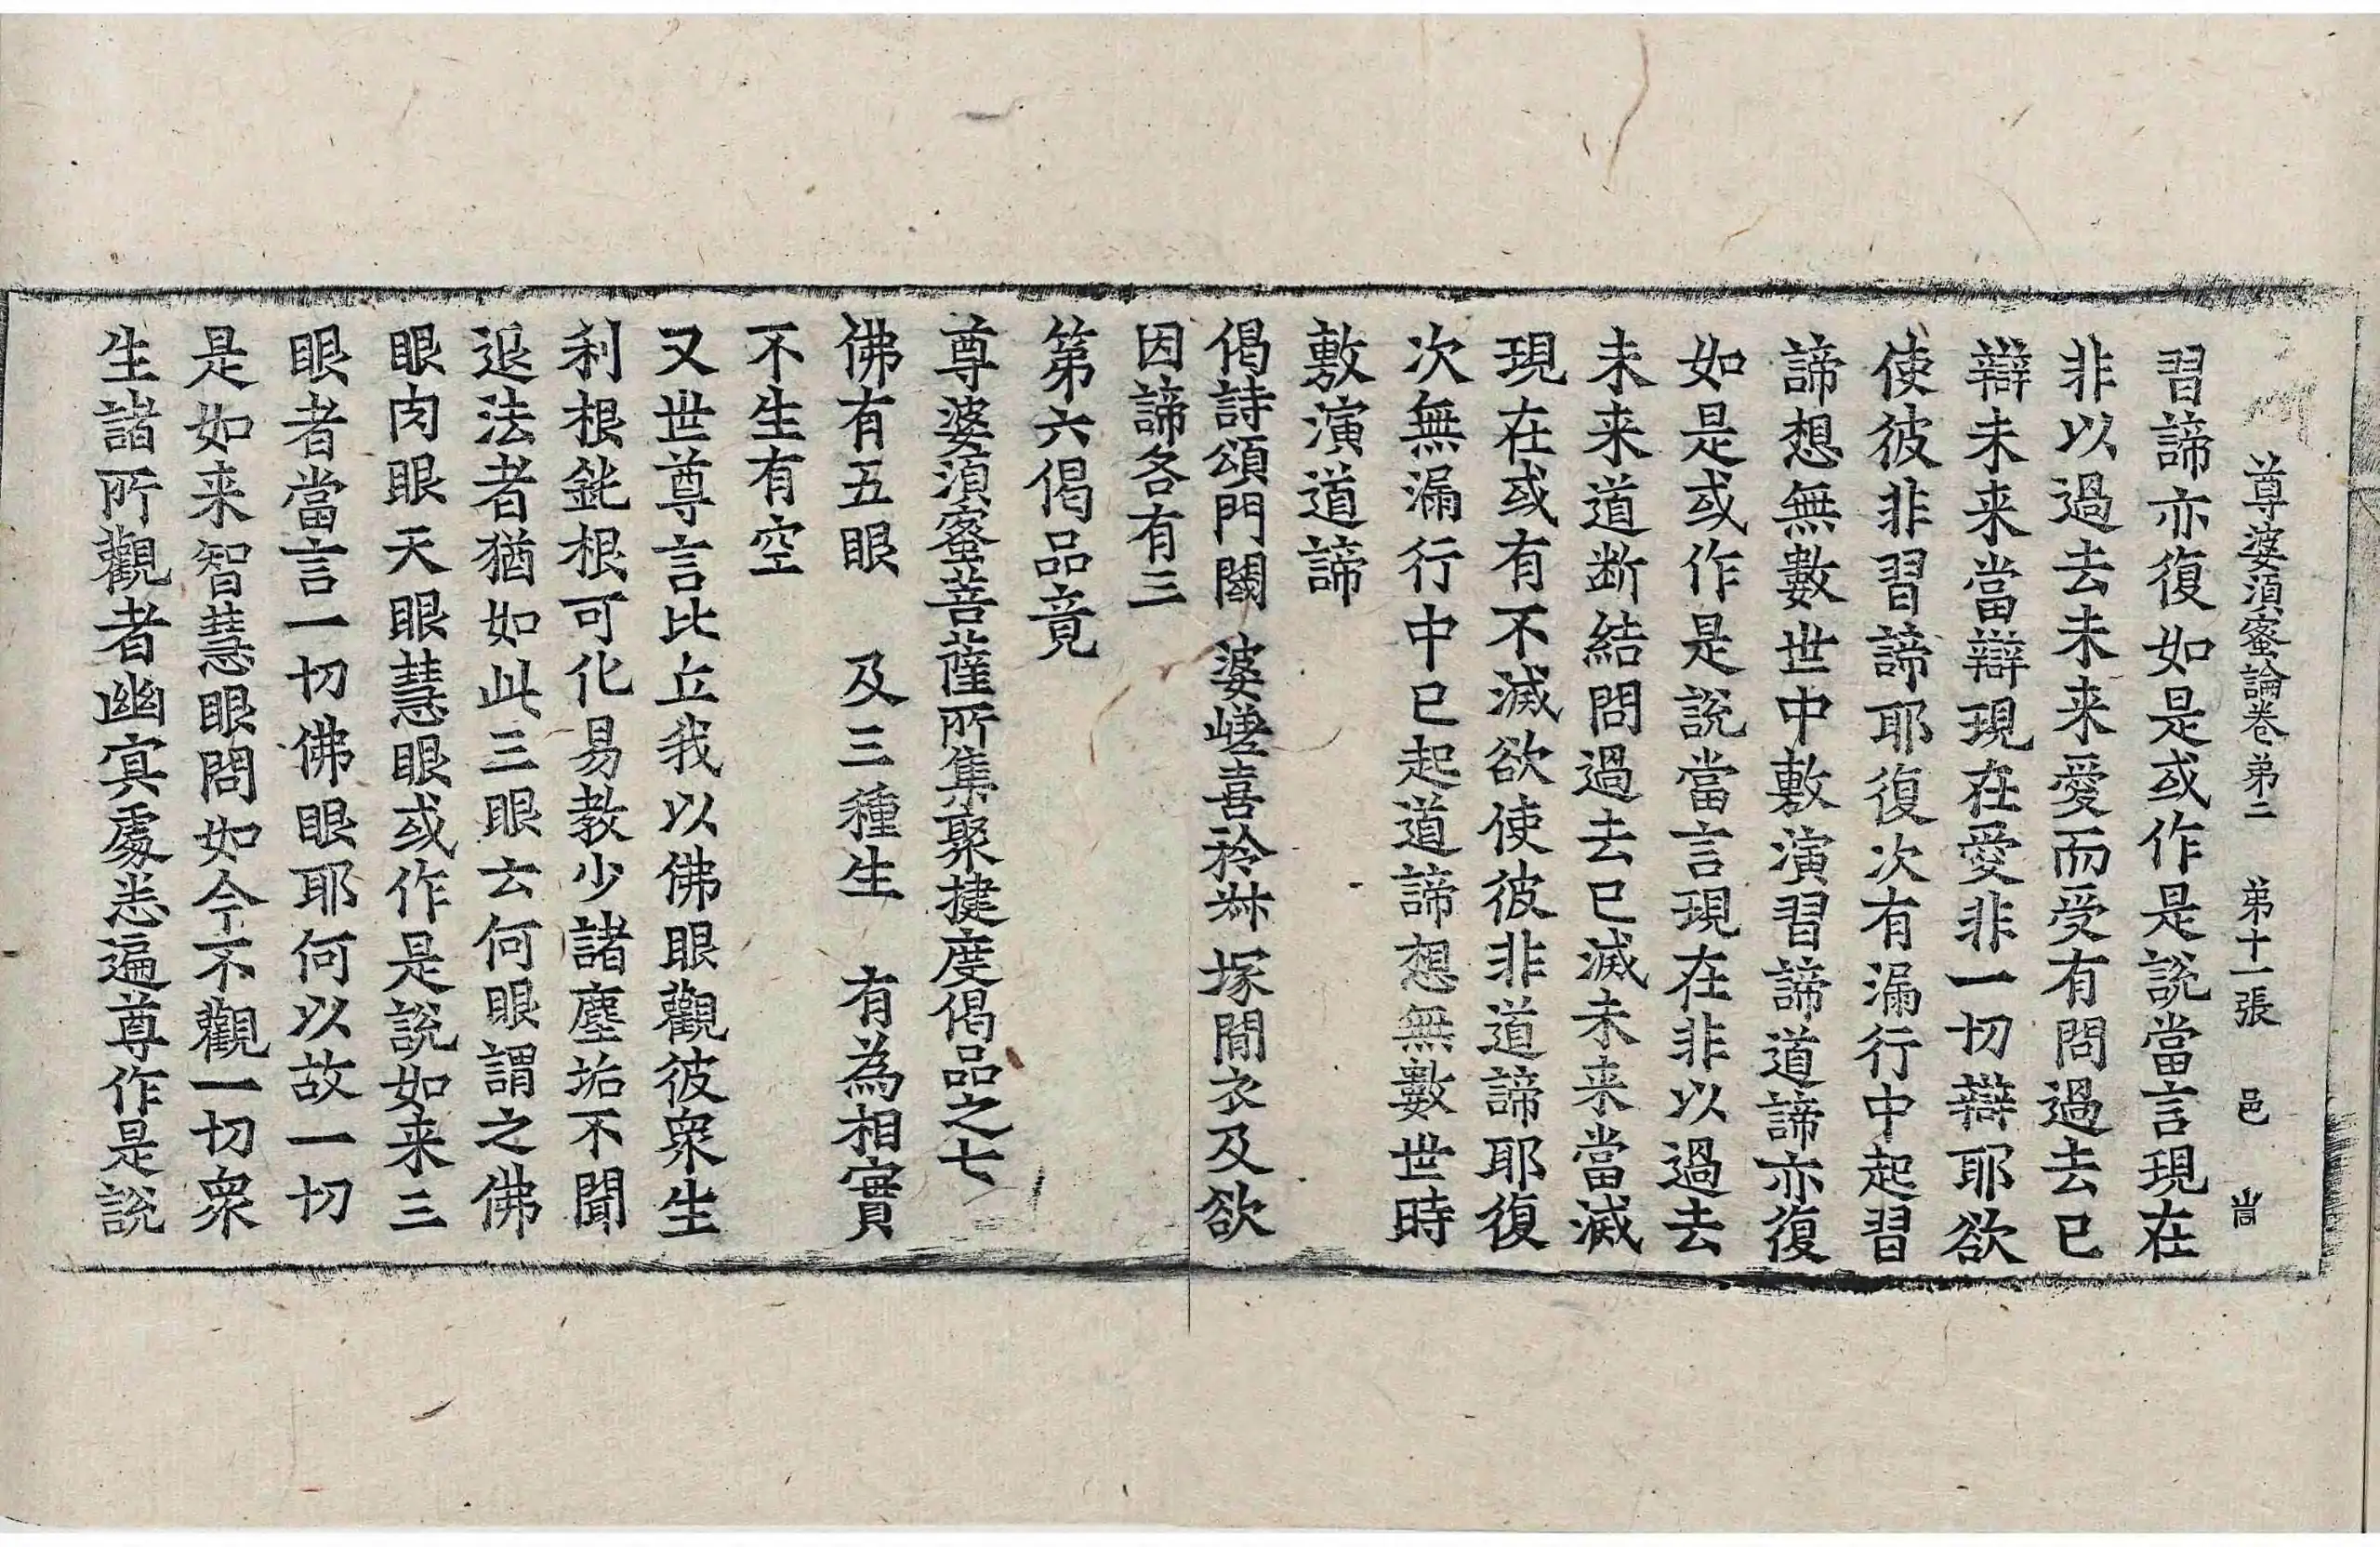 尊婆湏蜜論卷弟二　弟十一張　邑　嵩
習諦亦復如是或作是說當言現在
非以過去未来愛而受有問過去已
辯未来當辯現在愛非一切辯耶欲
使彼非習諦耶復次有漏行中起習
諦想無數世中敷演習諦道諦亦復
如是或作是說當言現在非以過去
未来道断結問過去已滅未来當滅
現在或有不滅欲使彼非道諦耶復
次無漏行中已起道諦想無數世時
敷演道諦
偈詩頌門閾　婆嵯喜矜𣗥　塚間衣及欲
因諦各有三
第六偈品竟
尊婆湏蜜菩薩所集聚揵度偈品之七
佛有五眼　及三種生　有為相實
不生有空
又世尊言比丘我以佛眼觀彼衆生
利根鈍根可化易教少諸塵垢不聞
退法者猶如此三眼云何眼謂之佛
眼肉眼天眼慧眼或作是說如来三
眼者當言一切佛眼耶何以故一切
是如来智慧眼問如今不觀一切衆
生諸所觀者幽冥處悉遍尊作是說